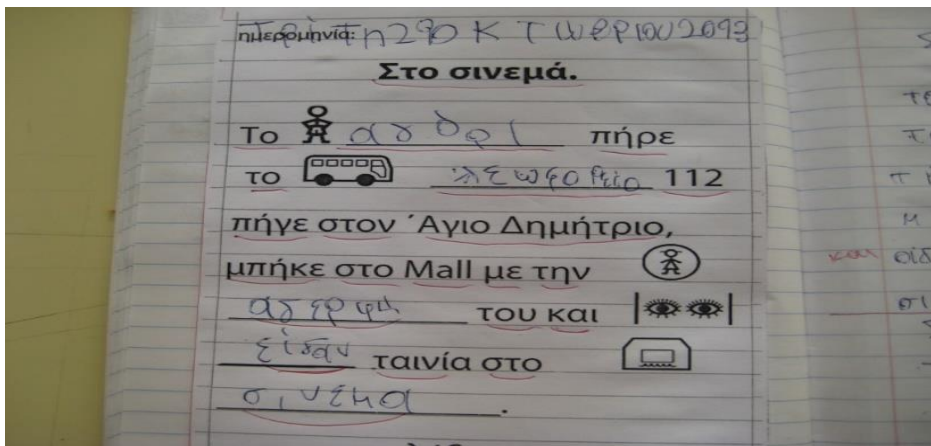 ημερομηνία: Τρίτη 29 Οκτωβρίου 2013
Στο σινεμά.
Το αγόρι πήρε
το λεωφορείο 112
πήγε στον Άγιο Δημήτριο,
μπήκε στο Mall με την
αδερφή του και
είδαν ταινία στο
σινεμα.
και